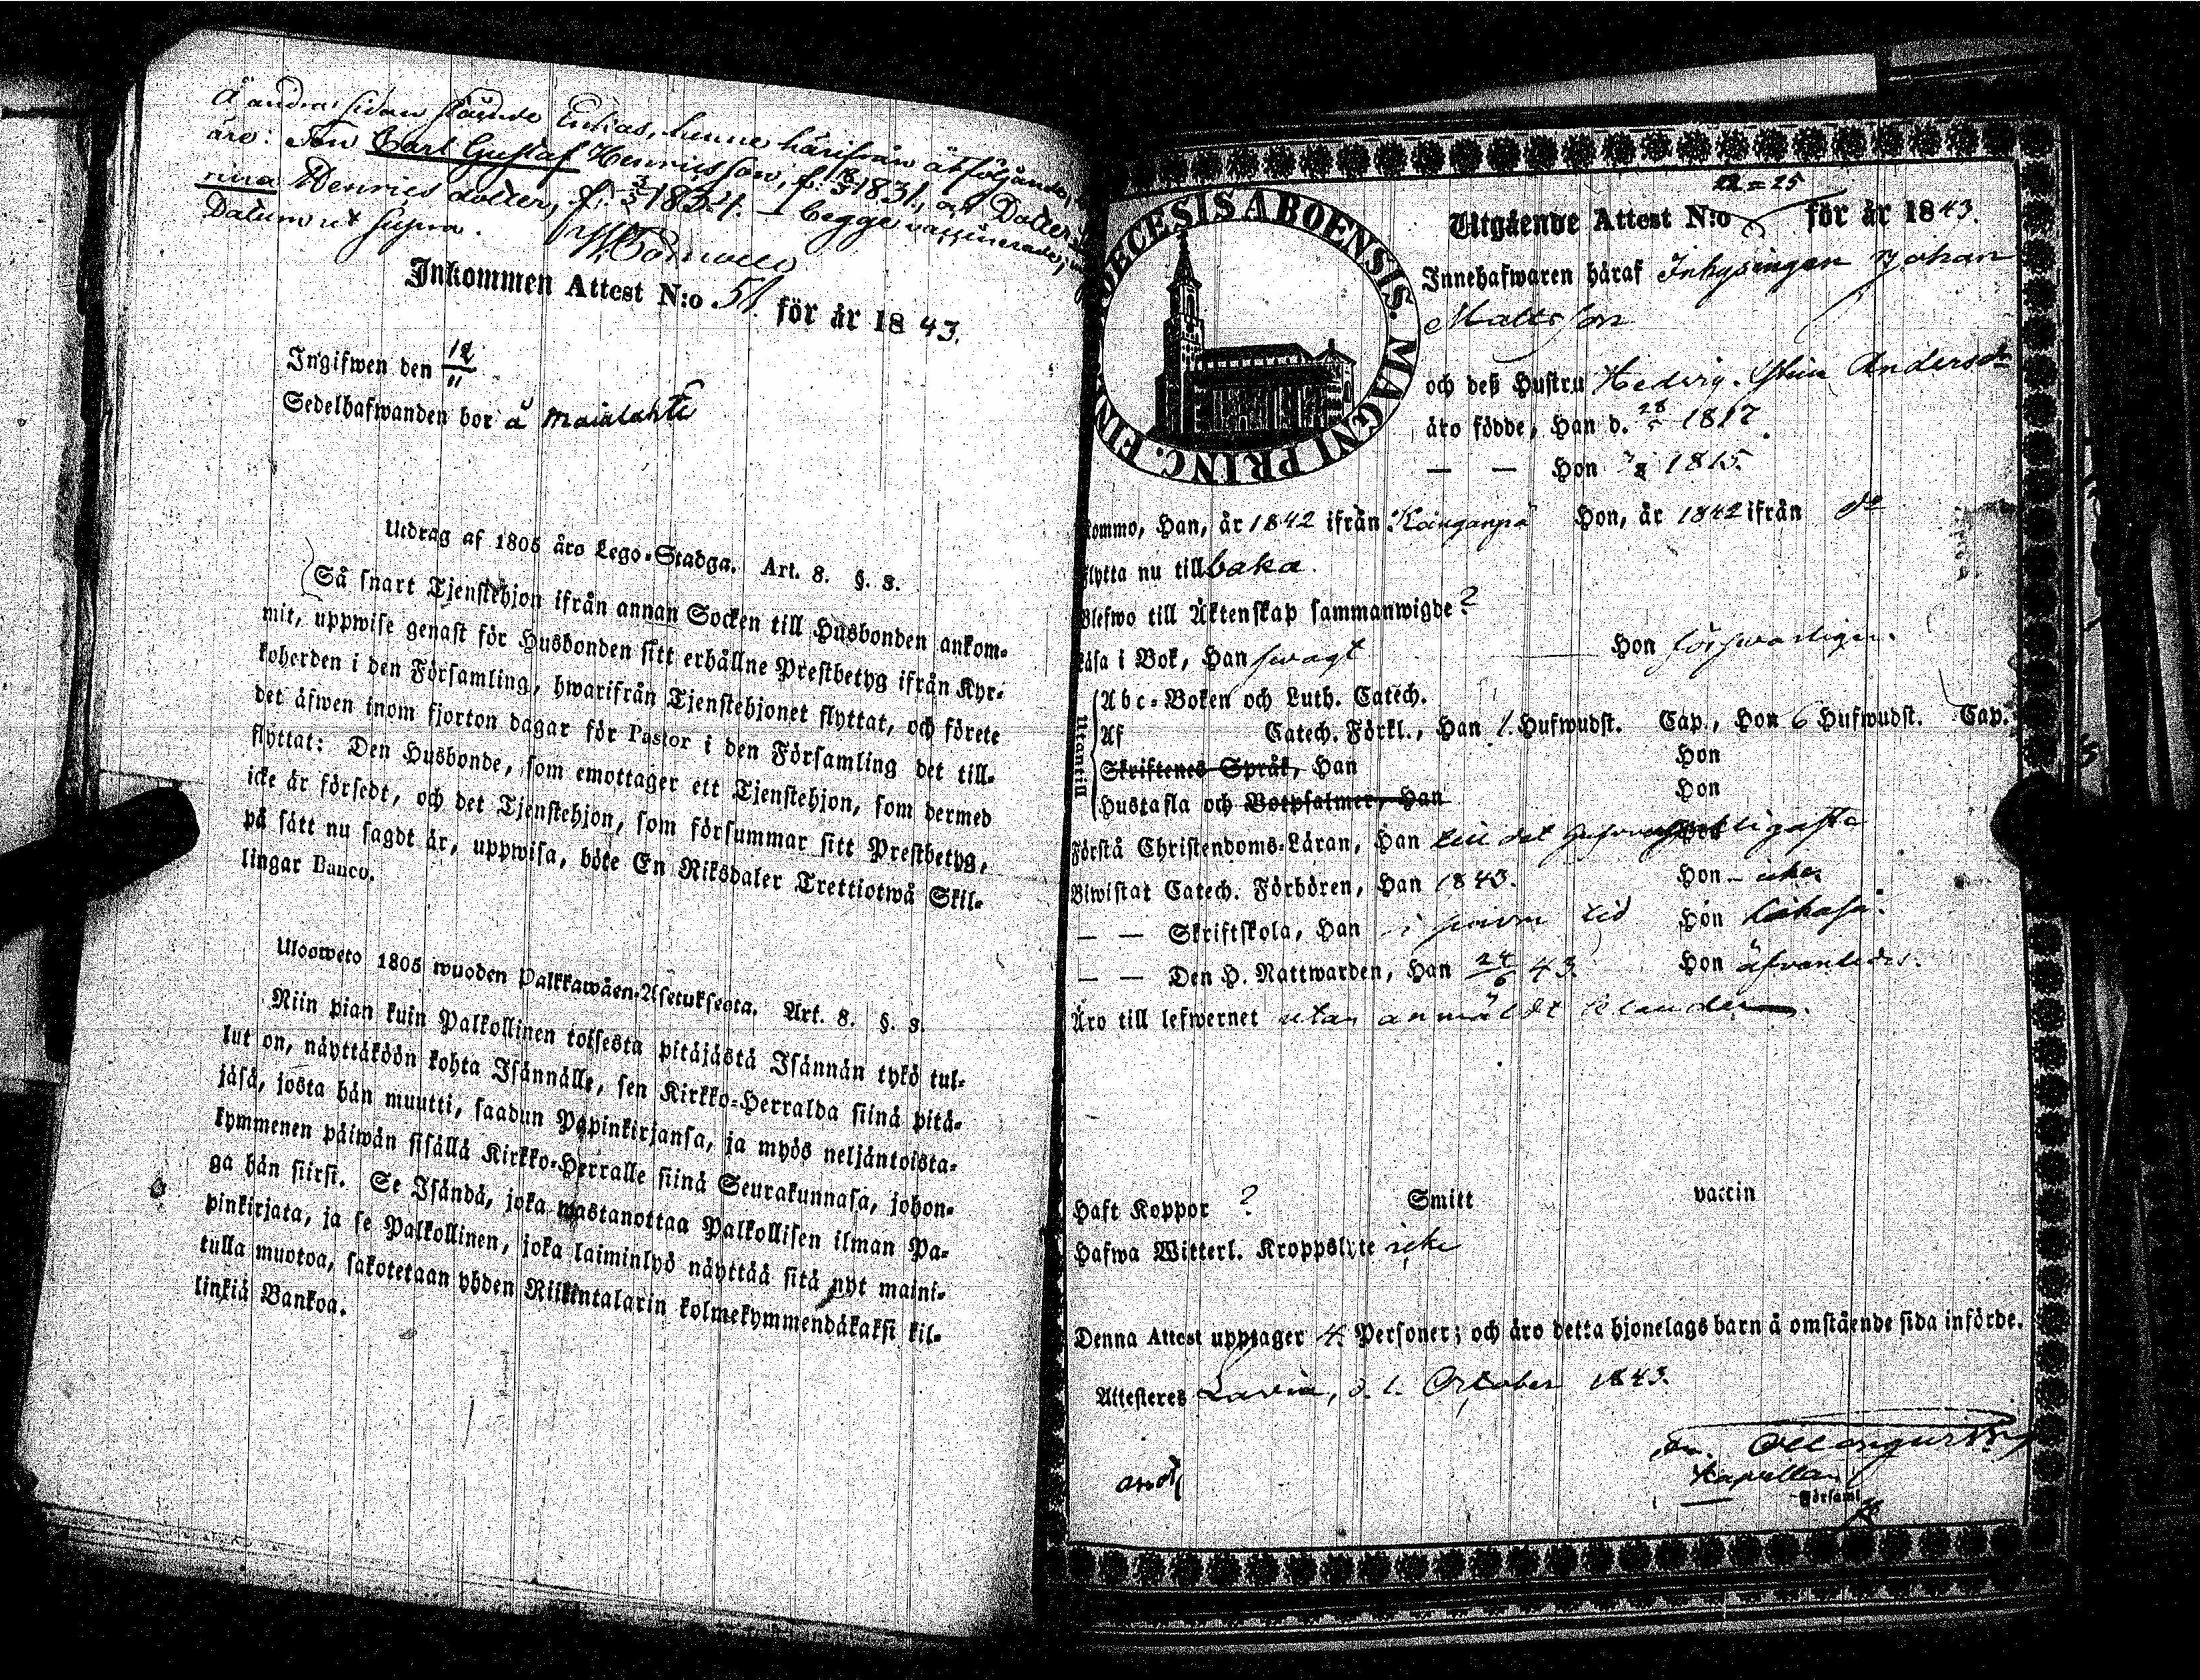 Å andra sidan stående Enkas, henne härifrån åtföljande,
äro: Son Carl Gustaf Henricsson, f. 1831, och Dotter
rina Henrics dotter, f. 3/3 1834. – begge vaccinerade,
Datum ut supra.
Inkommen Attest N:o 51. för år 1843.
Ingifwen den 12/11
Sedelhafwanden bor å Maialahti
Utdrag af 1805 åro Lego-Stadga. Art. 8. §. 3.
Så snart Tjenstehjon ifrån annan Socken till Husbonden ankom-
mit, uppwise genast för Husbonden sitt erhållne Prestbetyg ifrån Kyr-
koherden i den Församling, hwarifrån Tjenstehjonet flyttat, och förete
det äfwen inom fjorton dagar för Pastor i den Församling det till-
flyttat: Den Husbonde, som emottager ett Tjenstehjon, som dermed
icke är försedt, och det Tjenstehjon, som försummar sitt Prestbetyg,
på sätt nu sagdt är, uppwisa, böte En Riksdaler Trettiotwå Skil-
lingar Banco.
Ulosweto 1805 wuoden Palkkawäen-Asetuksesta. Art. 8. §. 3.
Niin pian kuin Palkollinen toisesta pitäjästä Isännän tykö tul-
lut on, näyttäköön kohta Isännälle, sen Kirkko-Herralda siinä pitä-
jäsä, josta hän muutti, saadun Papinkirjansa, ja myös neljäntoista-
kymmenen päiwän sisällä Kirkko-Herralle siinä Seurakunnasa, johon-
ga hän siirsi. Se Isändä, joka wastanottaa Palkollisen ilman Pa-
pinkirjata, ja se Palkollinen, joka laiminlyö näyttää sitä nyt maini-
tulla muotoa, sakotetaan yhden Riikintalarin kolmekymmendäkaksi kil-
linkiä Bankoa.
DIOECESIS ABOENSIS. MAGNI PRINC. FINL.
Utgående Attest N:o för år 1843.
Innehafwaren häraf Inhysingen Johan
Mattsson
och deß Hustru Hedvig Stina Andersdr
äro födde, Han d. 28 1817.
— — Hon 1815.
Kommo, Han, år 1842 ifrån Hon, år 1842 ifrån do
Flytta nu tillbaka.
Blefwo till Äktenskap sammanwigde?
Läsa i Bok, Han swagt Hon förswarligen.
Utantill
Abc-Boken och Luth. Catech.
Af Catech. Förkl., Han 1. Hufwudst. Cap., Hon 6 Hufwudst. Cap.
Skriftenes Språk, Han Hon
Hustafla och Botpsalmer, Han Hon
Förstå Christendoms-Läran, Han till det
Biwistat Catech. Förhören, Han 1843. Hon – icke
— — Skriftskola, Han i tid Hon likaså.
— — Den H. Nattwarden, Han 24/6 43. Hon äfvenledes.
Äro till lefwernet utan anmäldt klander.
Haft Koppor ? Smitt vaccin
Hafwa Witterl. Kroppslyte icke
Denna Attest upptager 4. Personer; och äro detta hjonelags barn å omstående sida införde.
Attesteres Lavia, d. 1. October 1843.
Kapellan
Församl.